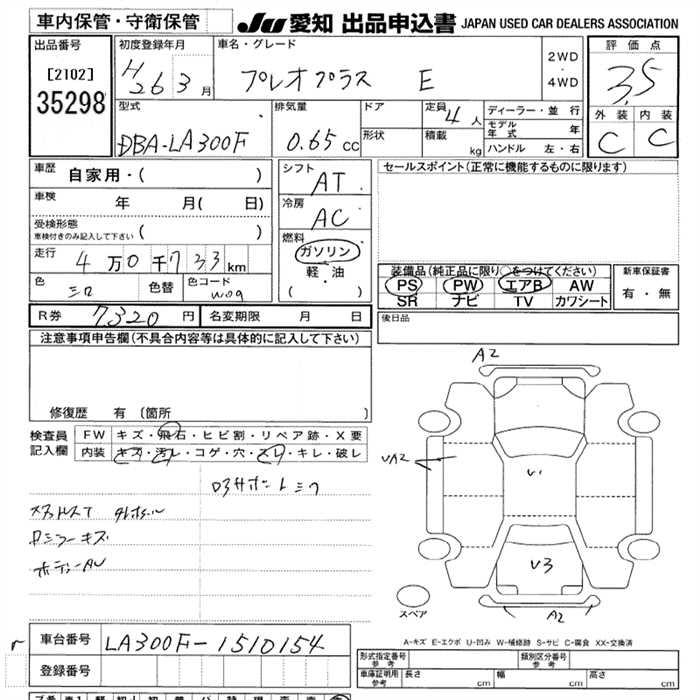 車内保管・守衛保管
JU 愛知 出品申込書 JAPAN USED CAR DEALERS ASSOCIATION
出品番号
[2102]
35298
初度登録年月
H26 3月
車名・グレード
プレオプラス E
2WD
・
4WD
評価点
3.5
外装 内装
C C
型式
DBA-LA300F
排気量
0.65 cc
ドア
形状
定員 4人
積載 kg
ディーラー・並行
モデル年式 年
ハンドル 左・右
車歴 自家用・( )
車検 年 月( 日)
受検形態
車検付きのみ記入して下さい ( )
走行 4万0千733km
色 色替 色コード
W09
シフト AT
冷房 AC
燃料
ガソリン
軽・油
( )
セールスポイント(正常に機能するものに限ります)
装備品(純正品に限り○をつけてください)
PS PW エアB AW
SR ナビ TV カワシート
新車保証書
有・無
R券 7320円 名変期限 月 日
後日品
注意事項申告欄(不具合内容等は具体的に記入して下さい)
修復歴 有 (箇所 )
検査員記入欄
FW キズ・飛石・ヒビ割・リペア跡・X要
内装 キズ・汚レ・コゲ・穴・スレ・キレ・破レ
ボディーAU
A2
UA2
U1
U3
A2
スペア
A-キズ E-エクボ U-凹み W-補修跡 S-サビ C-腐食 XX-交換済
車台番号 LA300F-1510154
登録番号
形式指定番号 参考
類別区分番号 参考
車庫証明用 参考
長さ cm 幅 cm 高さ cm